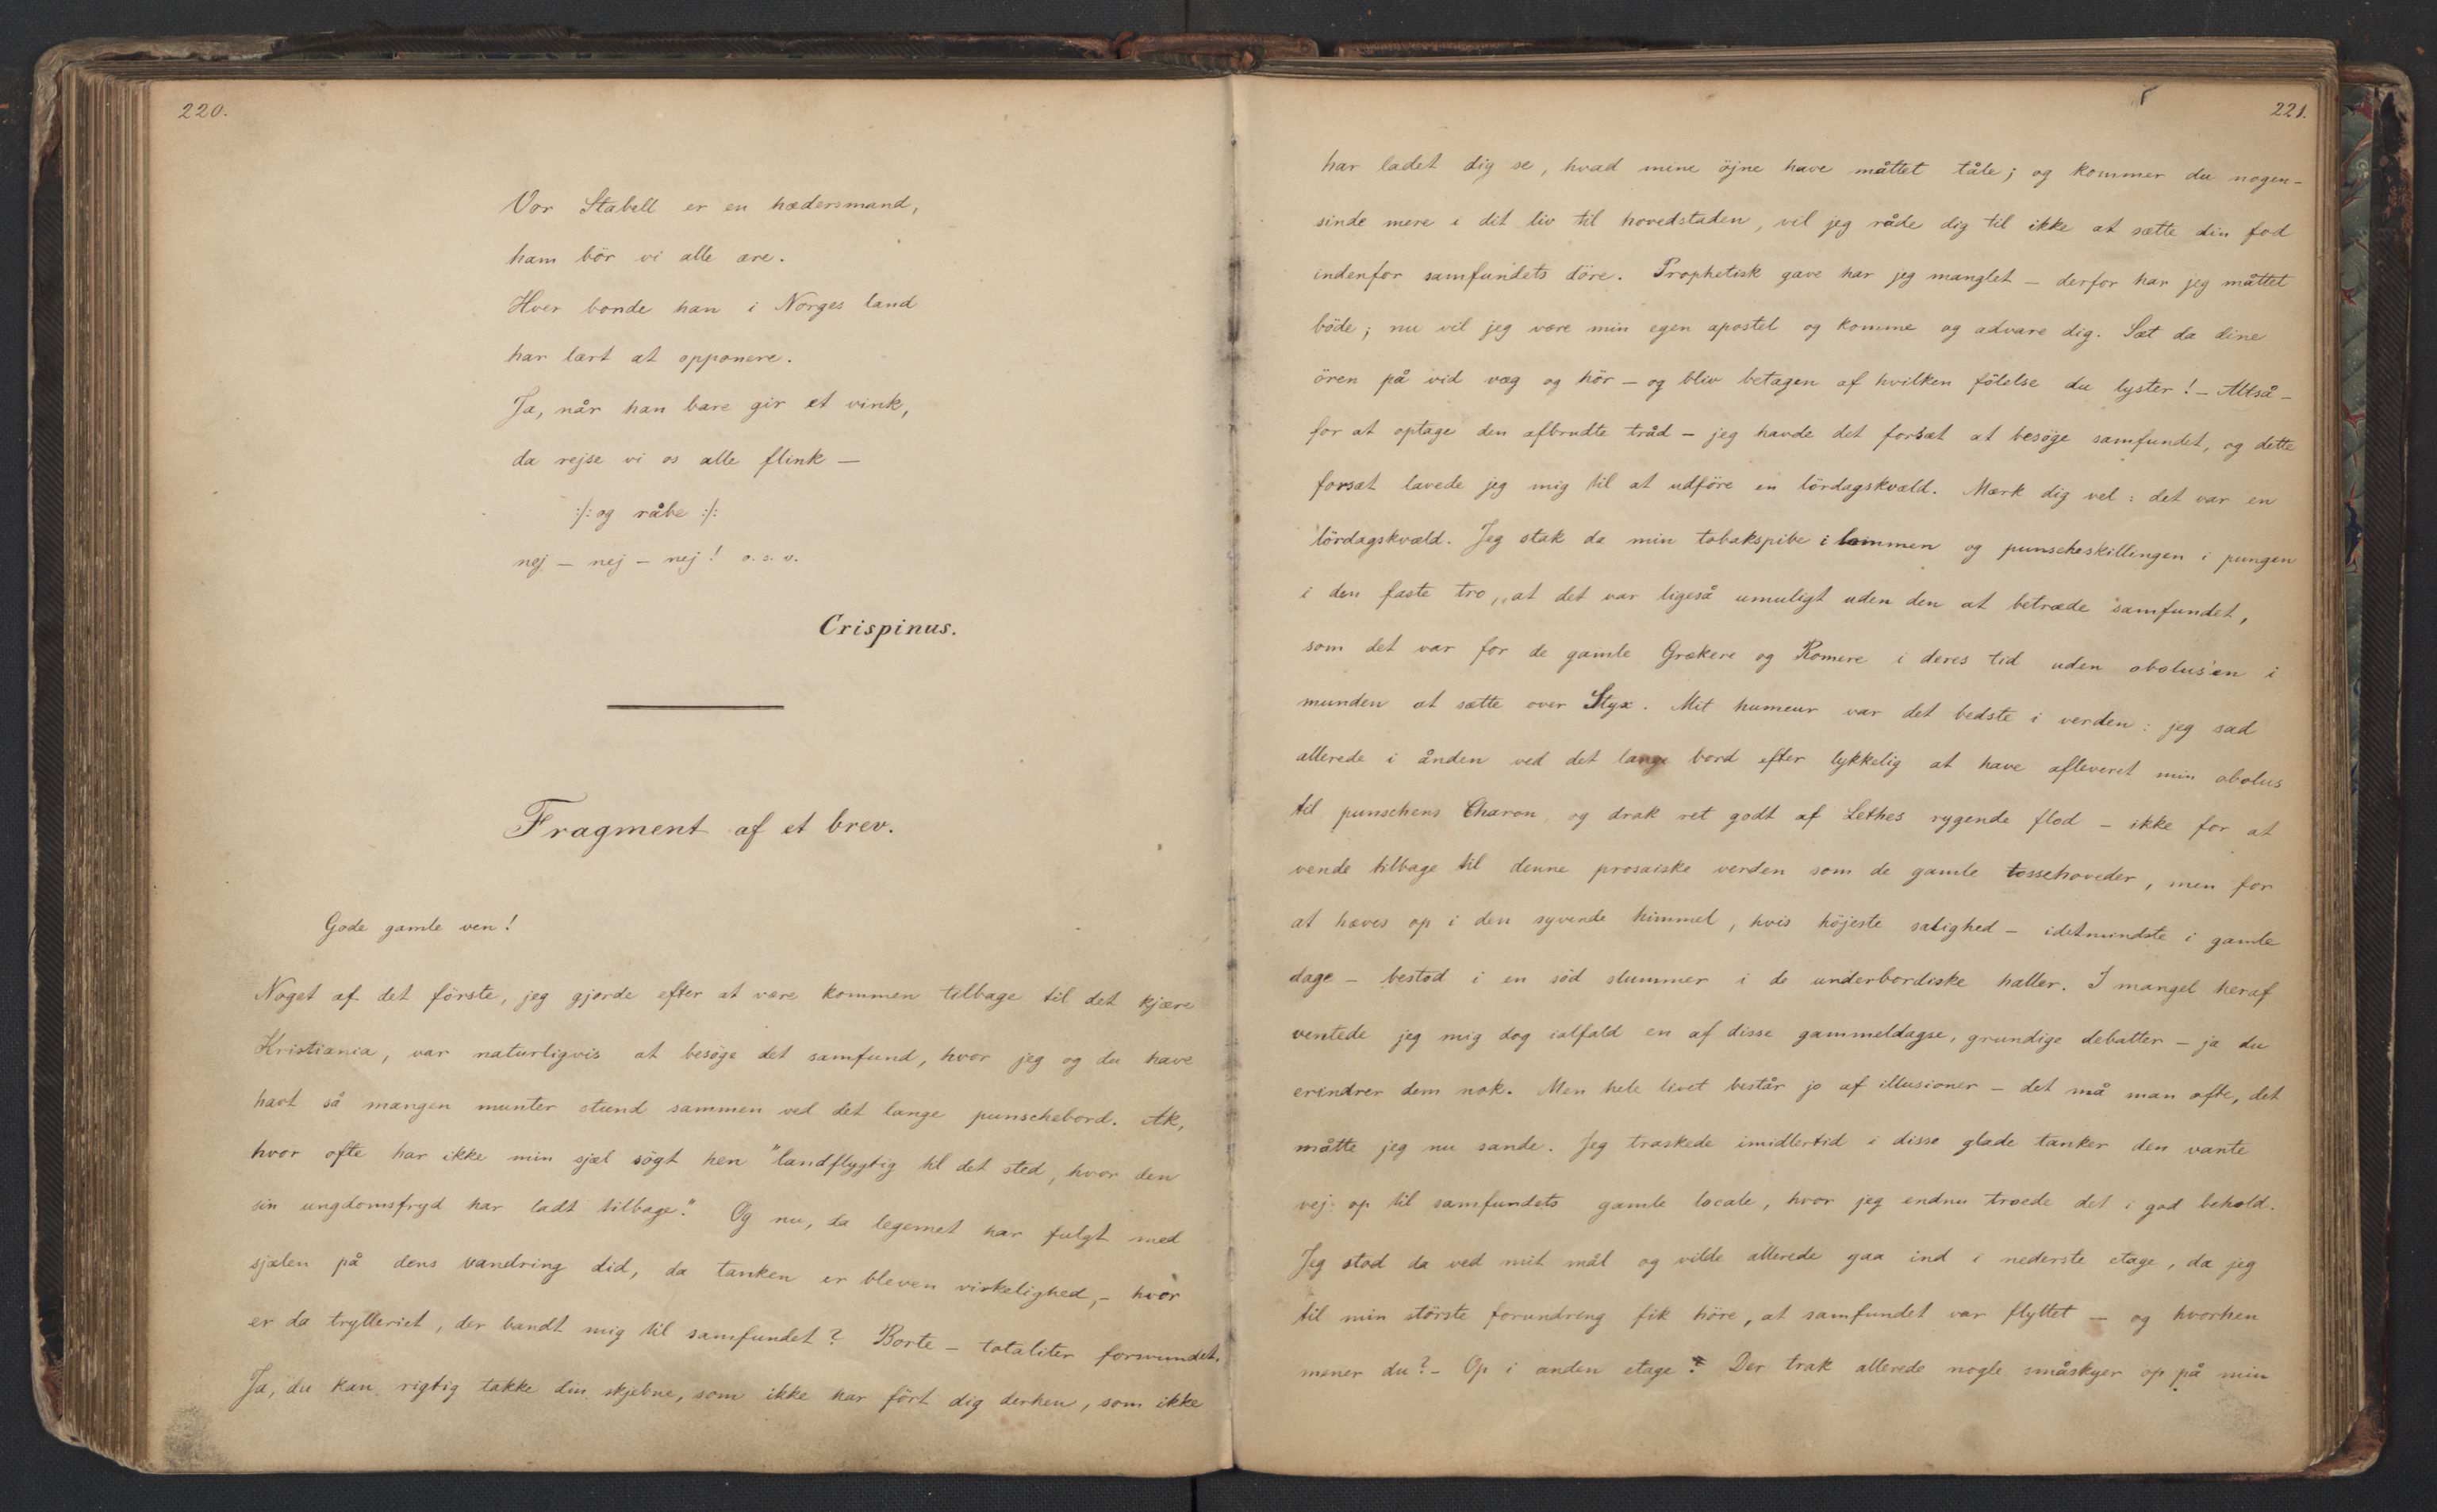 220.
Vor Stabell er en hædersmand,
ham bör vi alle ære.
Hver bonde han i Norges land
har lært at opponere.
Ja, når han bare gir et vink,
da rejse vi os alle flink —
:/: og råbe :/:
nej — nej — nej! o.s.v.
Crispinus.
Fragment af et brev.
Gode gamle ven!
Noget af det förste, jeg gjorde efter at være kommen tilbage til det kjære
Kristiania, var naturligvis at besöge det samfund, hvor jeg og du have
havt så mangen munter stund sammen ved det lange punschebord. Ak,
hvor ofte har ikke min sjæl sögt hen "landflygtig til det sted, hvor den
sin ungdomsfryd har ladt tilbage." Og nu, da legemet har fulgt med
sjælen på dens vandring did, da tanken er bleven virkelighed, – hvor
er da trylleriet, der bandt mig til samfundet? Borte – totaliter forsvundet.
Ja, du kan rigtig takke din skjebne, som ikke har fört dig derhen, som ikke
221.
har ladet dig se, hvad mine öjne have måttet tåle; og kommer du nogen-
sinde mere i dit liv til hovedstaden, vil jeg råde dig til ikke at sætte din fod
indenfor samfundets döre. Prophetisk gave har jeg manglet – derfor har jeg måttet
böde; nu vil jeg være min egen apostel og komme og advare dig. Sæt da dine
ören på vid væg og hör – og bliv betagen af hvilken fölelse du lyster! – Altså –
for at optage den afbrudte tråd – jeg havde det forsæt at besöge samfundet, og dette
forsæt lavede jeg mig til at udföre en lördagskvæld. Mærk dig vel: det var en
lördagskvæld. Jeg stak da min tobakspibe i lommen og punscheskillingen i pungen
i den faste tro, at det var ligeså umuligt uden den at betræde samfundet,
som det var for de gamle Grækere og Romere i deres tid uden obolus'en i
munden at sætte over Styx. Mit humeur var det bedste i verden: jeg sad
allerede i ånden ved det lange bord efter lykkelig at have afleveret min obolus
til punschens Charon og drak ret godt af Lethes rygende flod – ikke for at
vende tilbage til denne prosaiske verden som de gamle tossehoveder, men for
at hæves op i den syvende himmel, hvis höjeste salighed – idetmindste i gamle
dage – bestod i en söd slummer i de underbordiske haller. I mangel heraf
ventede jeg mig dog ialfald en af disse gammeldagse, grundige debatter – ja du
erindrer dem nok. Men hele livet består jo af illusioner – det må man ofte, det
måtte jeg nu sande. Jeg traskede imidlertid i disse glade tanker den vante
vej op til samfundets gamle locale, hvor jeg endnu troede det i god behold.
Jeg stod da ved mit mål og vilde allerede gaa ind i nederste etage, da jeg
til min störste forundring fik höre, at samfundet var flyttet — og hvorhen
mener du? – Op i anden etage. Der trak allerede nogle småskyer op på min